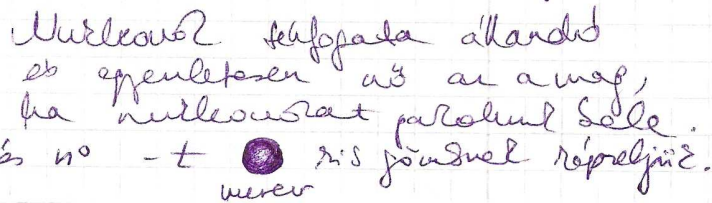 Nukleonok térfogata állandó
és egyenletesen nő az a mag,
ha nukleonokat pakolunk bele.
és n⁰ -t kis gömbnek képzeljük.
merev